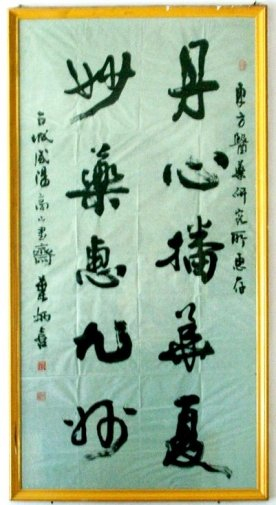 東方醫藥研究所惠存
丹心播華夏
妙藥惠九州
古城咸陽高山書齋